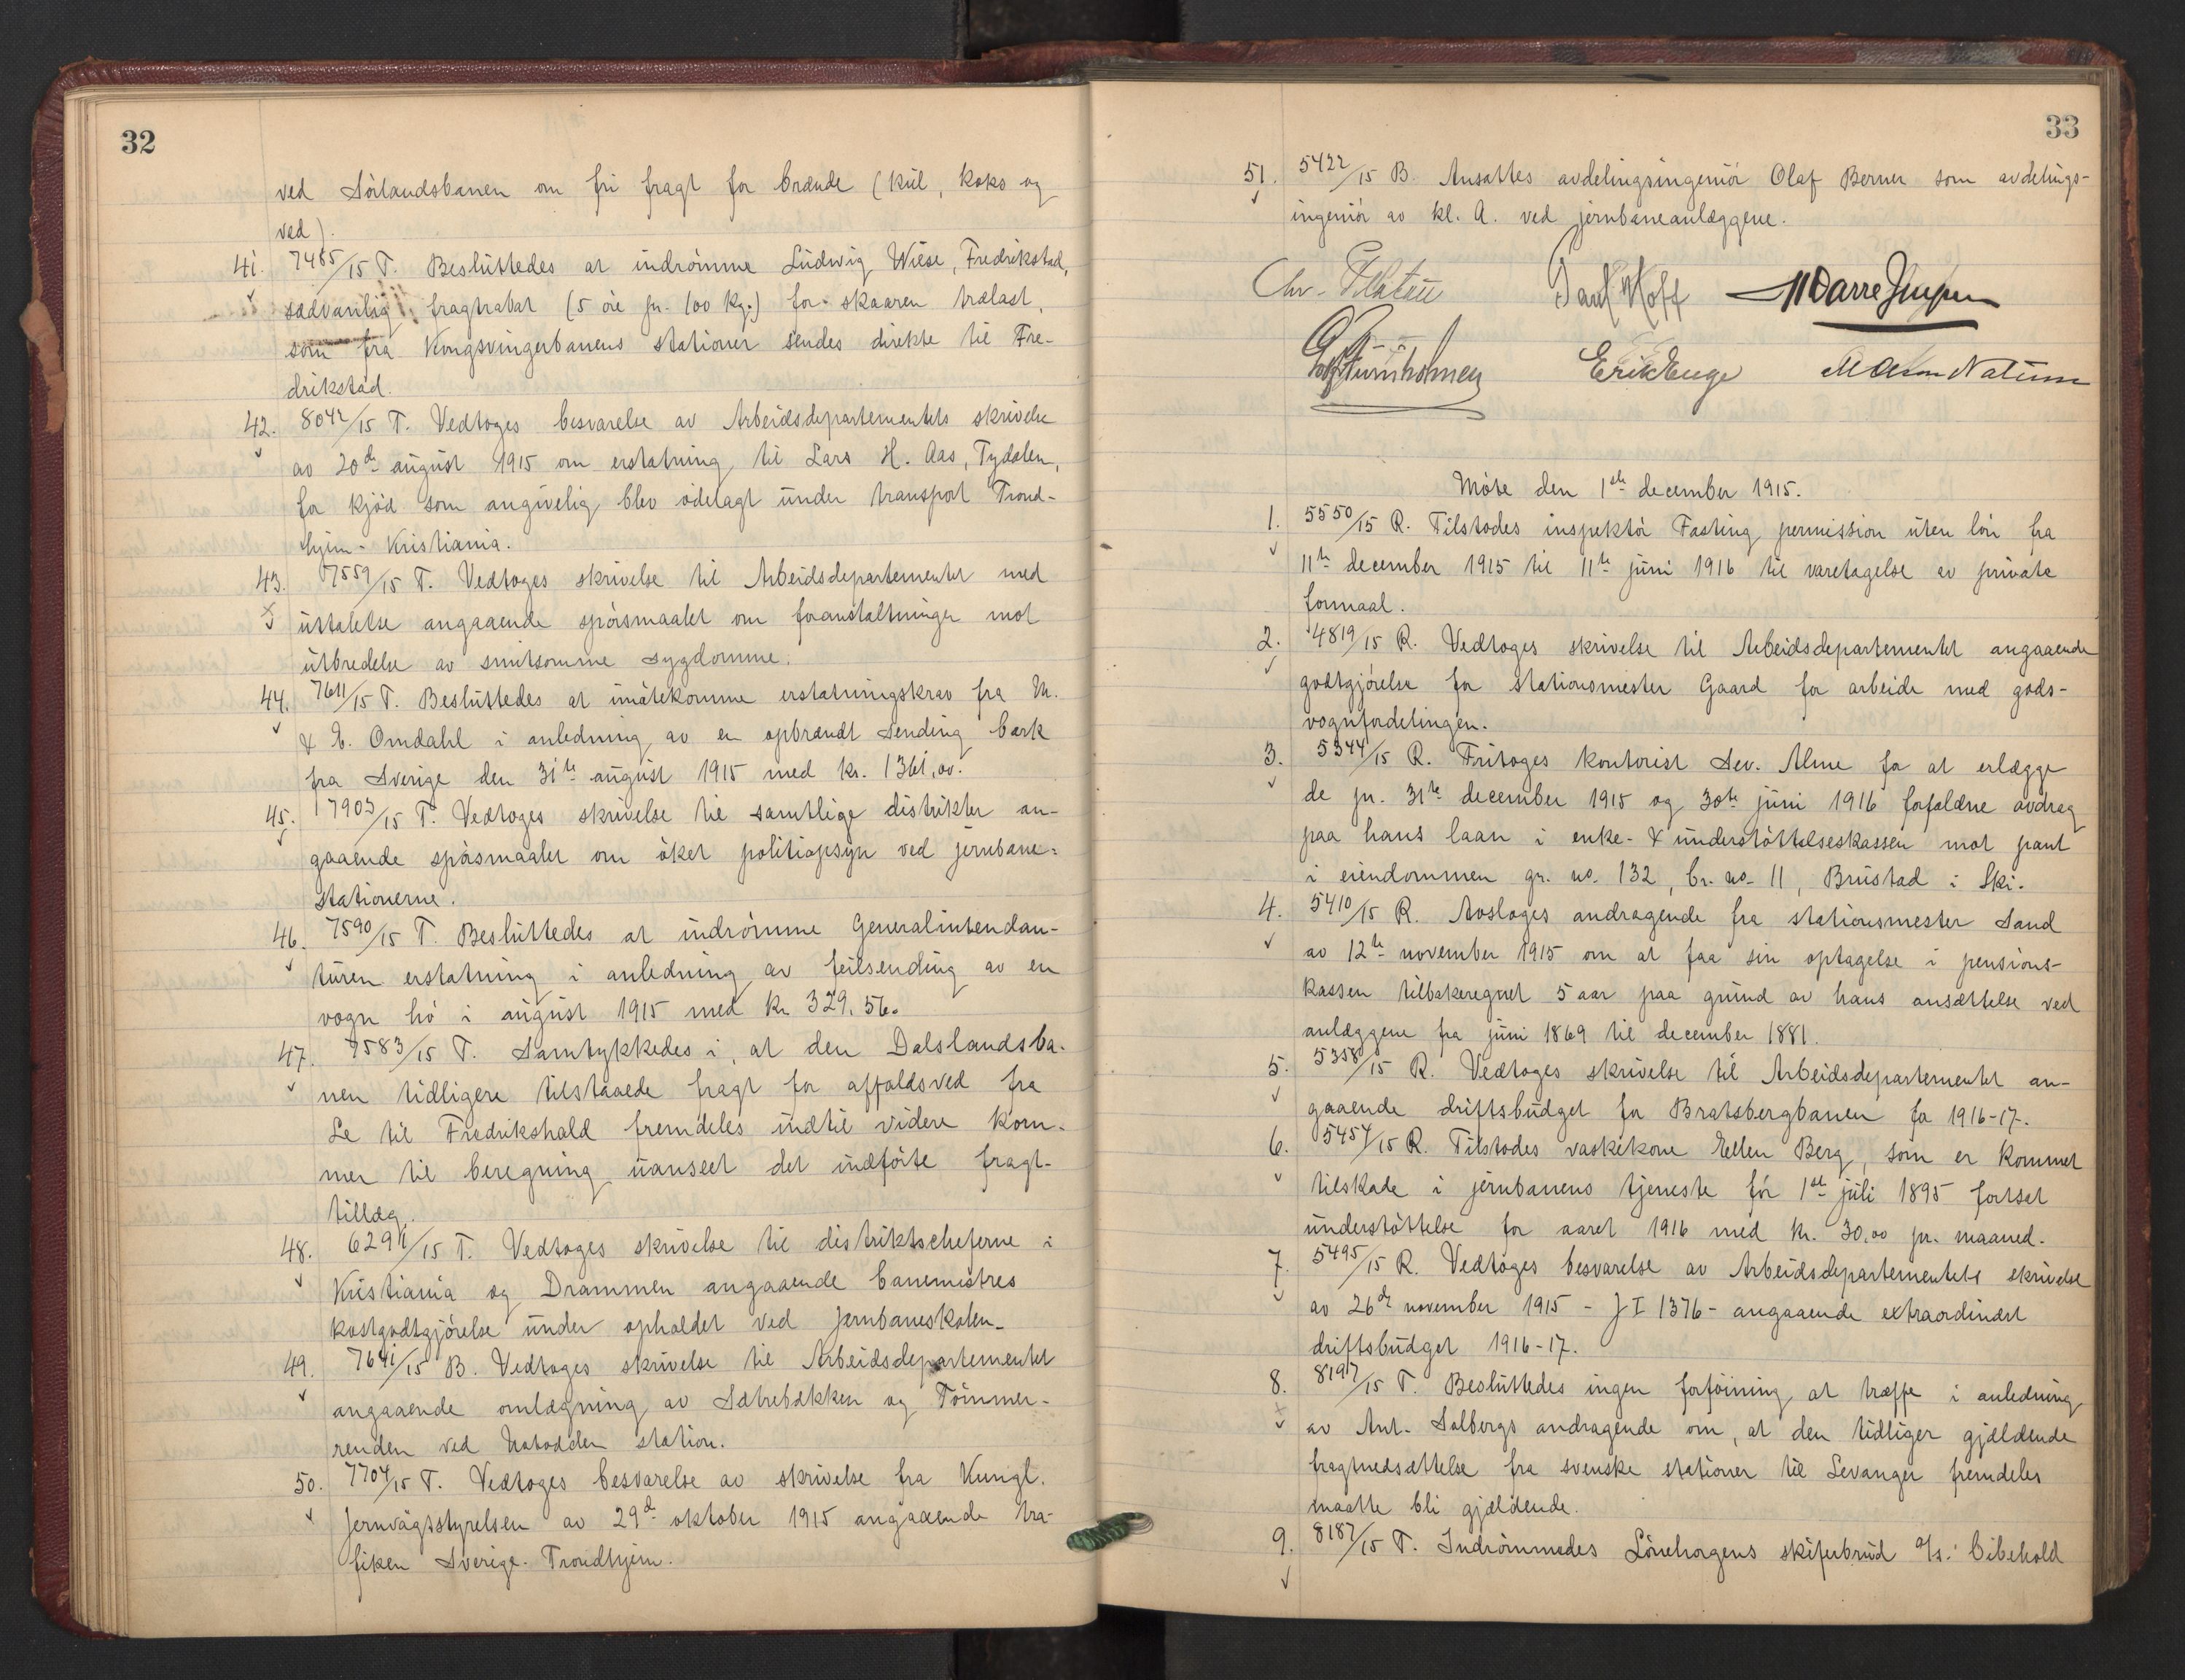 32
ved Sörlandsbanen om fri fragt for brænde (kul, koks og
ved).
41. 7485/15 T. Besluttedes at indrömme Ludwig Wiese, Fredrikstad,
sædvanlig fragtrabat (5 öre pr. 100 kg.) for skaaren trælast,
som fra Kongsvingerbanens stationer sendes direkte til Fre-
drikstad.
42. 8042/15 T. Vedtoges besvarelse av Arbeidsdepartementets skrivelse
av 20de august 1915 om erstatning til Lars H. Aas, Tydalen,
for kjöd som angivelig blev ödelagt under transport Trond-
hjem - Kristiania.
43. 7559/15 T. Vedtoges skrivelse til Arbeidsdepartementet med
uttalelse angaaende spörsmaalet om foranstaltninger mot
utbredelse av smitsomme sygdomme.
44. 7611/15 T. Besluttedes at imötekomme erstatningskrav fra M.
& E. Omdahl i anledning av en opbrændt sending bark
fra Sverige den 31te august 1915 med kr. 1361,00.
45. 7903/15 T. Vedtoges skrivelse til samtlige distrikter an-
gaaende spörsmaalet om öket politiopsyn ved jernbane-
stationerne.
46. 7590/15 T. Besluttedes at indrömme Generalintendan-
turen erstatning i anledning av feilsending av en
vogn hö i august 1915 med kr. 329,56.
47. 7583/15 T. Samtykkedes i, at den Dalslandsba-
nen tidligere tilstaaede fragt for affaldsved fra
Le til Fredrikshald fremdeles indtil videre kom-
mer til beregning uanseet det indförte fragt-
tillæg.
48. 6291/15 T. Vedtoges skrivelse til distriktscheferne i
Kristiania og Drammen angaaende banemestres
kostgodtgjörelse under opholdet ved Jernbaneskolen.
49. 7641/15 B. Vedtoges skrivelse til Arbeidsdepartementet
angaaende omlægning av Sætrebækken og Tömmer-
renden ved Notodden station.
50. 7704/15 T. Vedtoges besvarelse av skrivelse fra Kungl.
Jernvägsstyrelsen av 29de oktober 1915 angaaende tra-
fiken Sverige - Trondhjem.
33
51. 5422/15 B. Ansattes avdelingsingeniör Olaf Berner som avdelings-
ingeniör av kl. A. ved jernbaneanlæggene.
Chr. Platou Paul Hoff
Erik Enge
Möte den 1ste december 1915.
1. 5550/15 R. Tilstodes inspektör Fasting permission uten lön fra
11te december 1915 til 11te juni 1916 til varetagelse av private
formaal.
2. 4819/15 R. Vedtoges skrivelse til Arbeidsdepartementet angaaende
godtgjörelse for stationsmester Gaard for arbeide med gods-
vognfordelingen.
3. 5344/15 R. Fritoges kontorist Sev. Alme for at erlægge
de pr. 31te december 1915 og 30te juni 1916 forfaldne avdrag
paa hans laan i enke- & understöttelseskassen mot pant
i eiendommen gr. no. 132, br. no. 11, Brustad i Ski.
4. 5410/15 R. Avsloges andragende fra stationsmester Sand
av 12te november 1915 om at faa sin optagelse i pensions-
kassen tilbakeregnet 5 aar paa grund av hans ansættelse ved
anlæggene fra juni 1869 til december 1881.
5. 5358/15 R. Vedtoges skrivelse til Arbeidsdepartementet an-
gaaende driftsbudget for Bratsbergbanen for 1916-17.
6. 5454/15 R. Tilstodes vaskekone Ellen Berg, som er kommet
tilskade i jernbanens tjeneste för 1ste juli 1895 fortsat
understöttelse for aaret 1916 med kr. 30,00 pr. maaned.
7. 5495/15 R. Vedtoges besvarelse av Arbeidsdepartementets skrivelse
av 26de november 1915 - J I 1376 - angaaende extraordinært
driftsbudget 1916-17.
8. 8197/15 T. Besluttedes ingen forföining at træffe i anledning
av Ant. Solbergs andragende om, at den tidliger gjældende
fragtnedsættelse fra svenske stationer til Levanger fremdeles
maatte bli gjældende.
9. 8187/15 T. Indrömmedes Lönehorgens skiferbrud a/s. bibehold